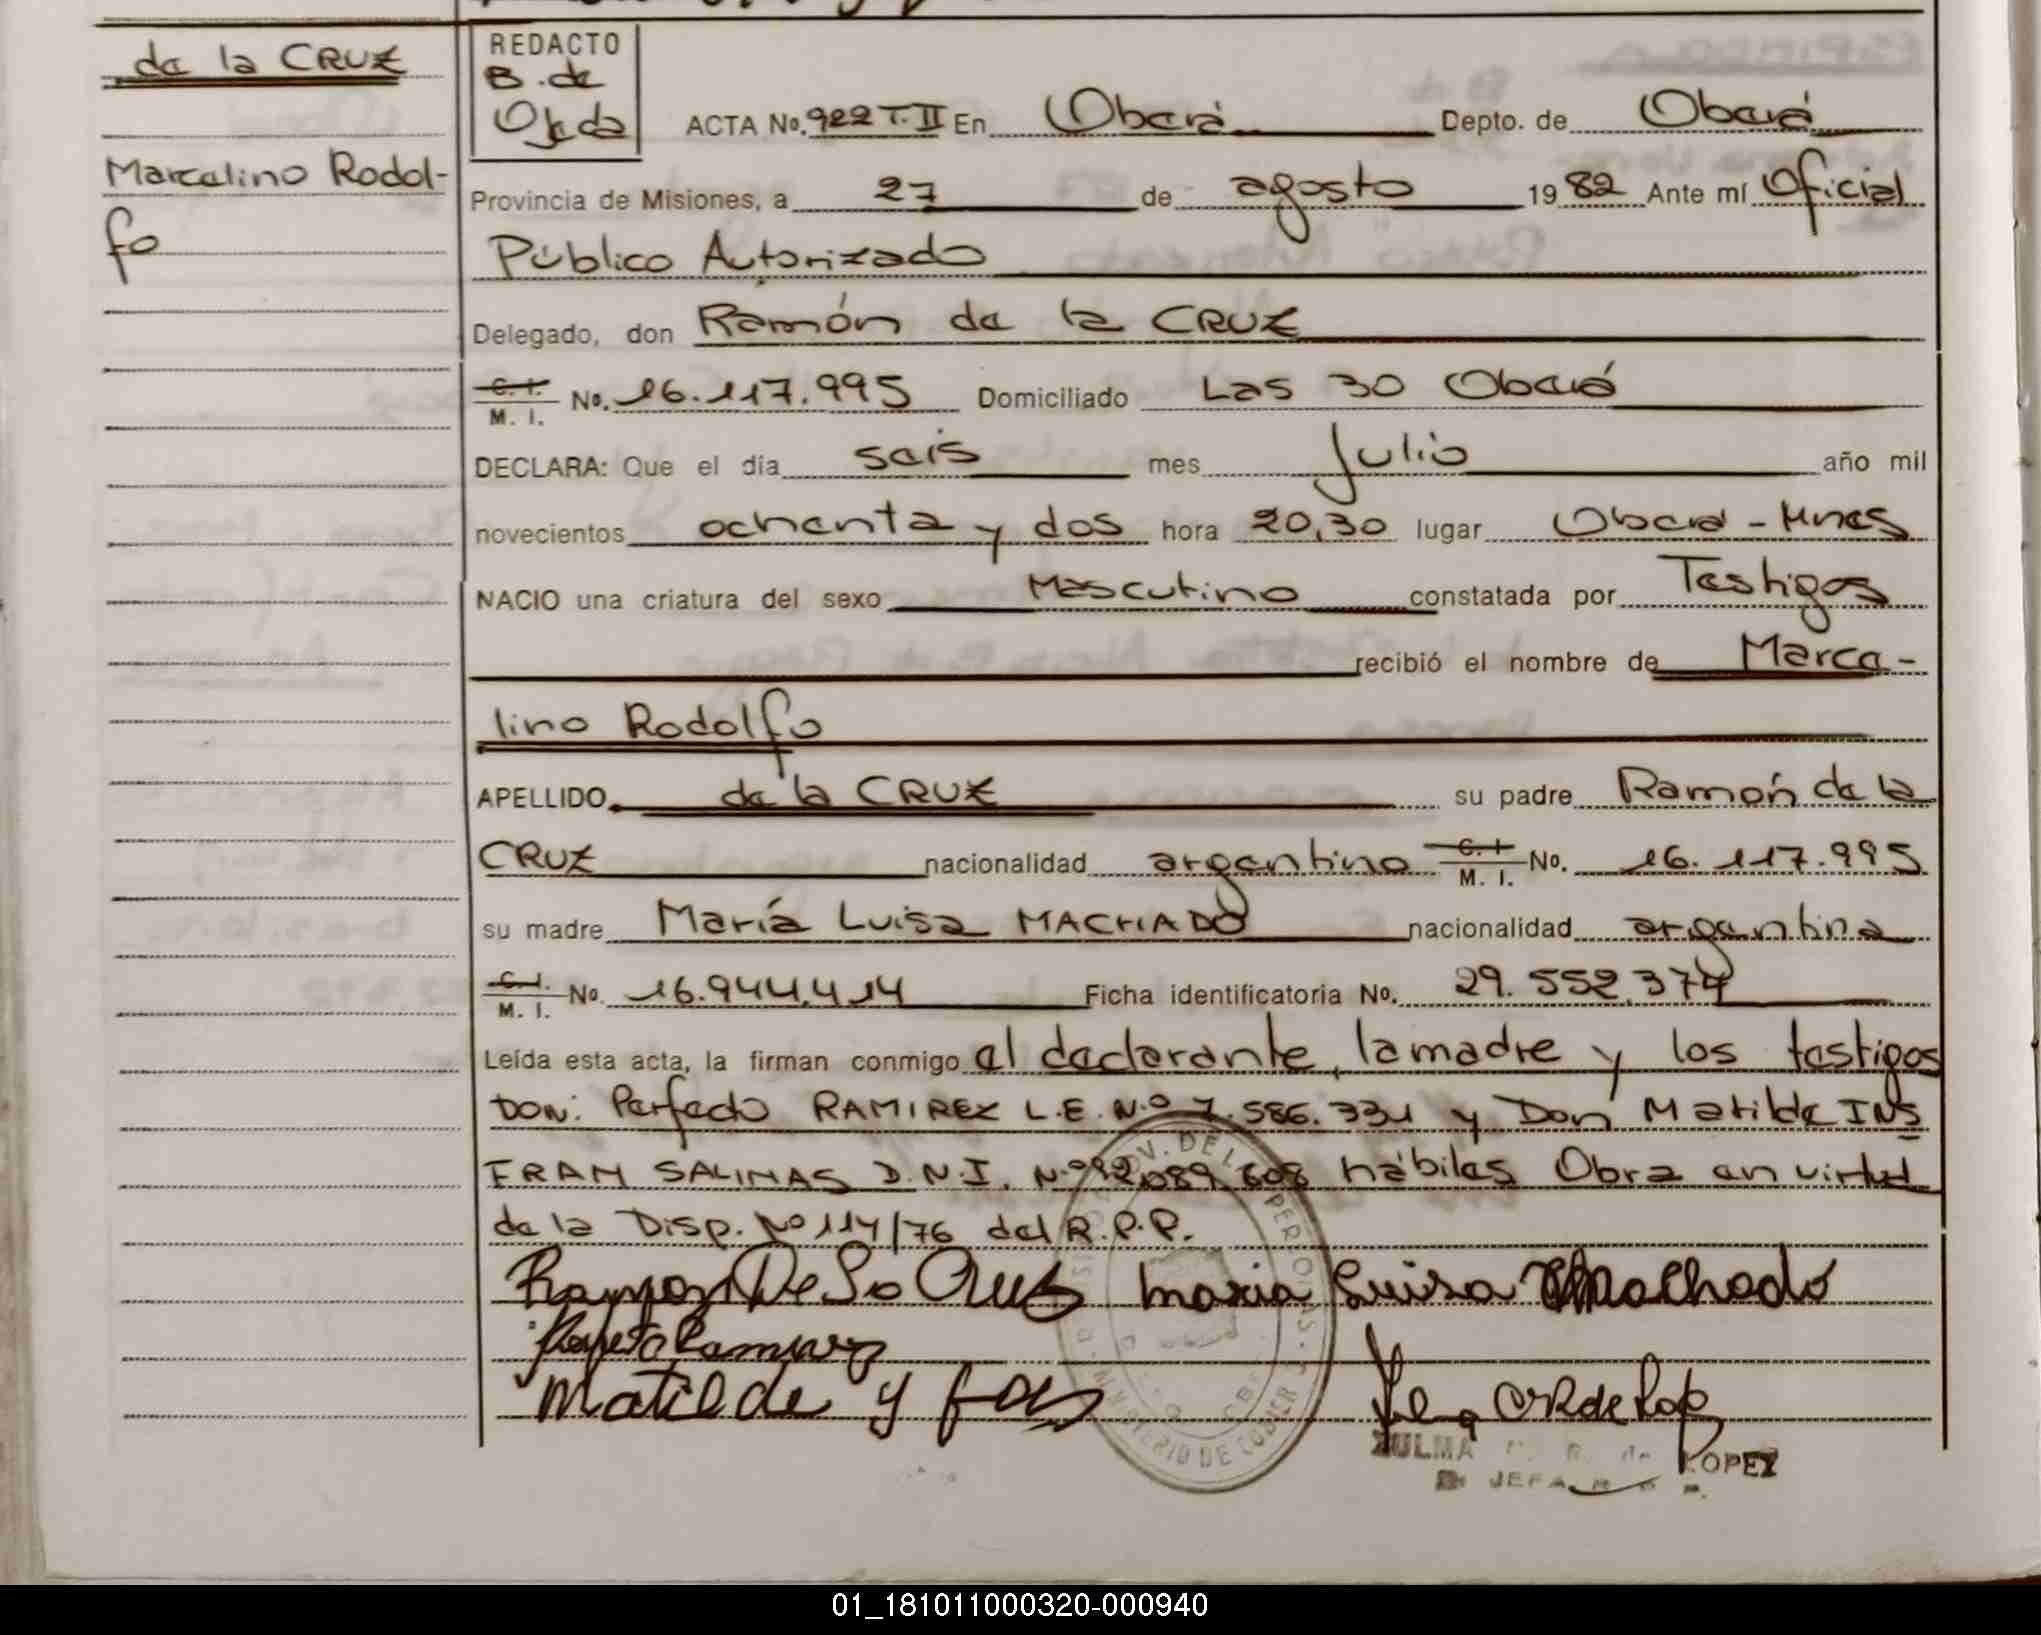 de la CRUZ
Marcelino Rodol-
fo
REDACTO
B. de
Ojeda
ACTA No. 922 T. II En Oberá Depto. de Oberá
Provincia de Misiones, a 27 de agosto 1982 Ante mí Oficial
Público Autorizado
Delegado, don Ramón de la CRUZ
C. I.
M. I. No. 16.117.995 Domiciliado Las 30 Oberá
DECLARA: Que el día seis mes Julio año mil
novecientos ochenta y dos hora 20,30 lugar Oberá - Mnes
NACIO una criatura del sexo Masculino constatada por Testigos
recibió el nombre de Marce-
lino Rodolfo
APELLIDO de la CRUZ su padre Ramón de la
CRUZ nacionalidad argentino C. I. M. I. No. 16.117.995
su madre María Luisa MACHADO nacionalidad argentina
C. I.
M. I. No. 16.944.414 Ficha identificatoria No. 29.552.374
Leída esta acta, la firman conmigo el declarante, la madre y los testigos
DON: Perfecto RAMIREZ L.E. N.º 7.586.331 y Don Matilde INS
FRAM SALINAS D.N.I. N.º 92.089.608 hábiles Obra en virtud
de la Disp. Nº 114/76 del R.P.P.
Ramon De La Cruz maria Luisa Machado
Perfecto Ramirez
Matilde y
ZULMA R. de LOPEZ
JEFA
MINISTERIO DE GOBIER
01_181011000320-000940